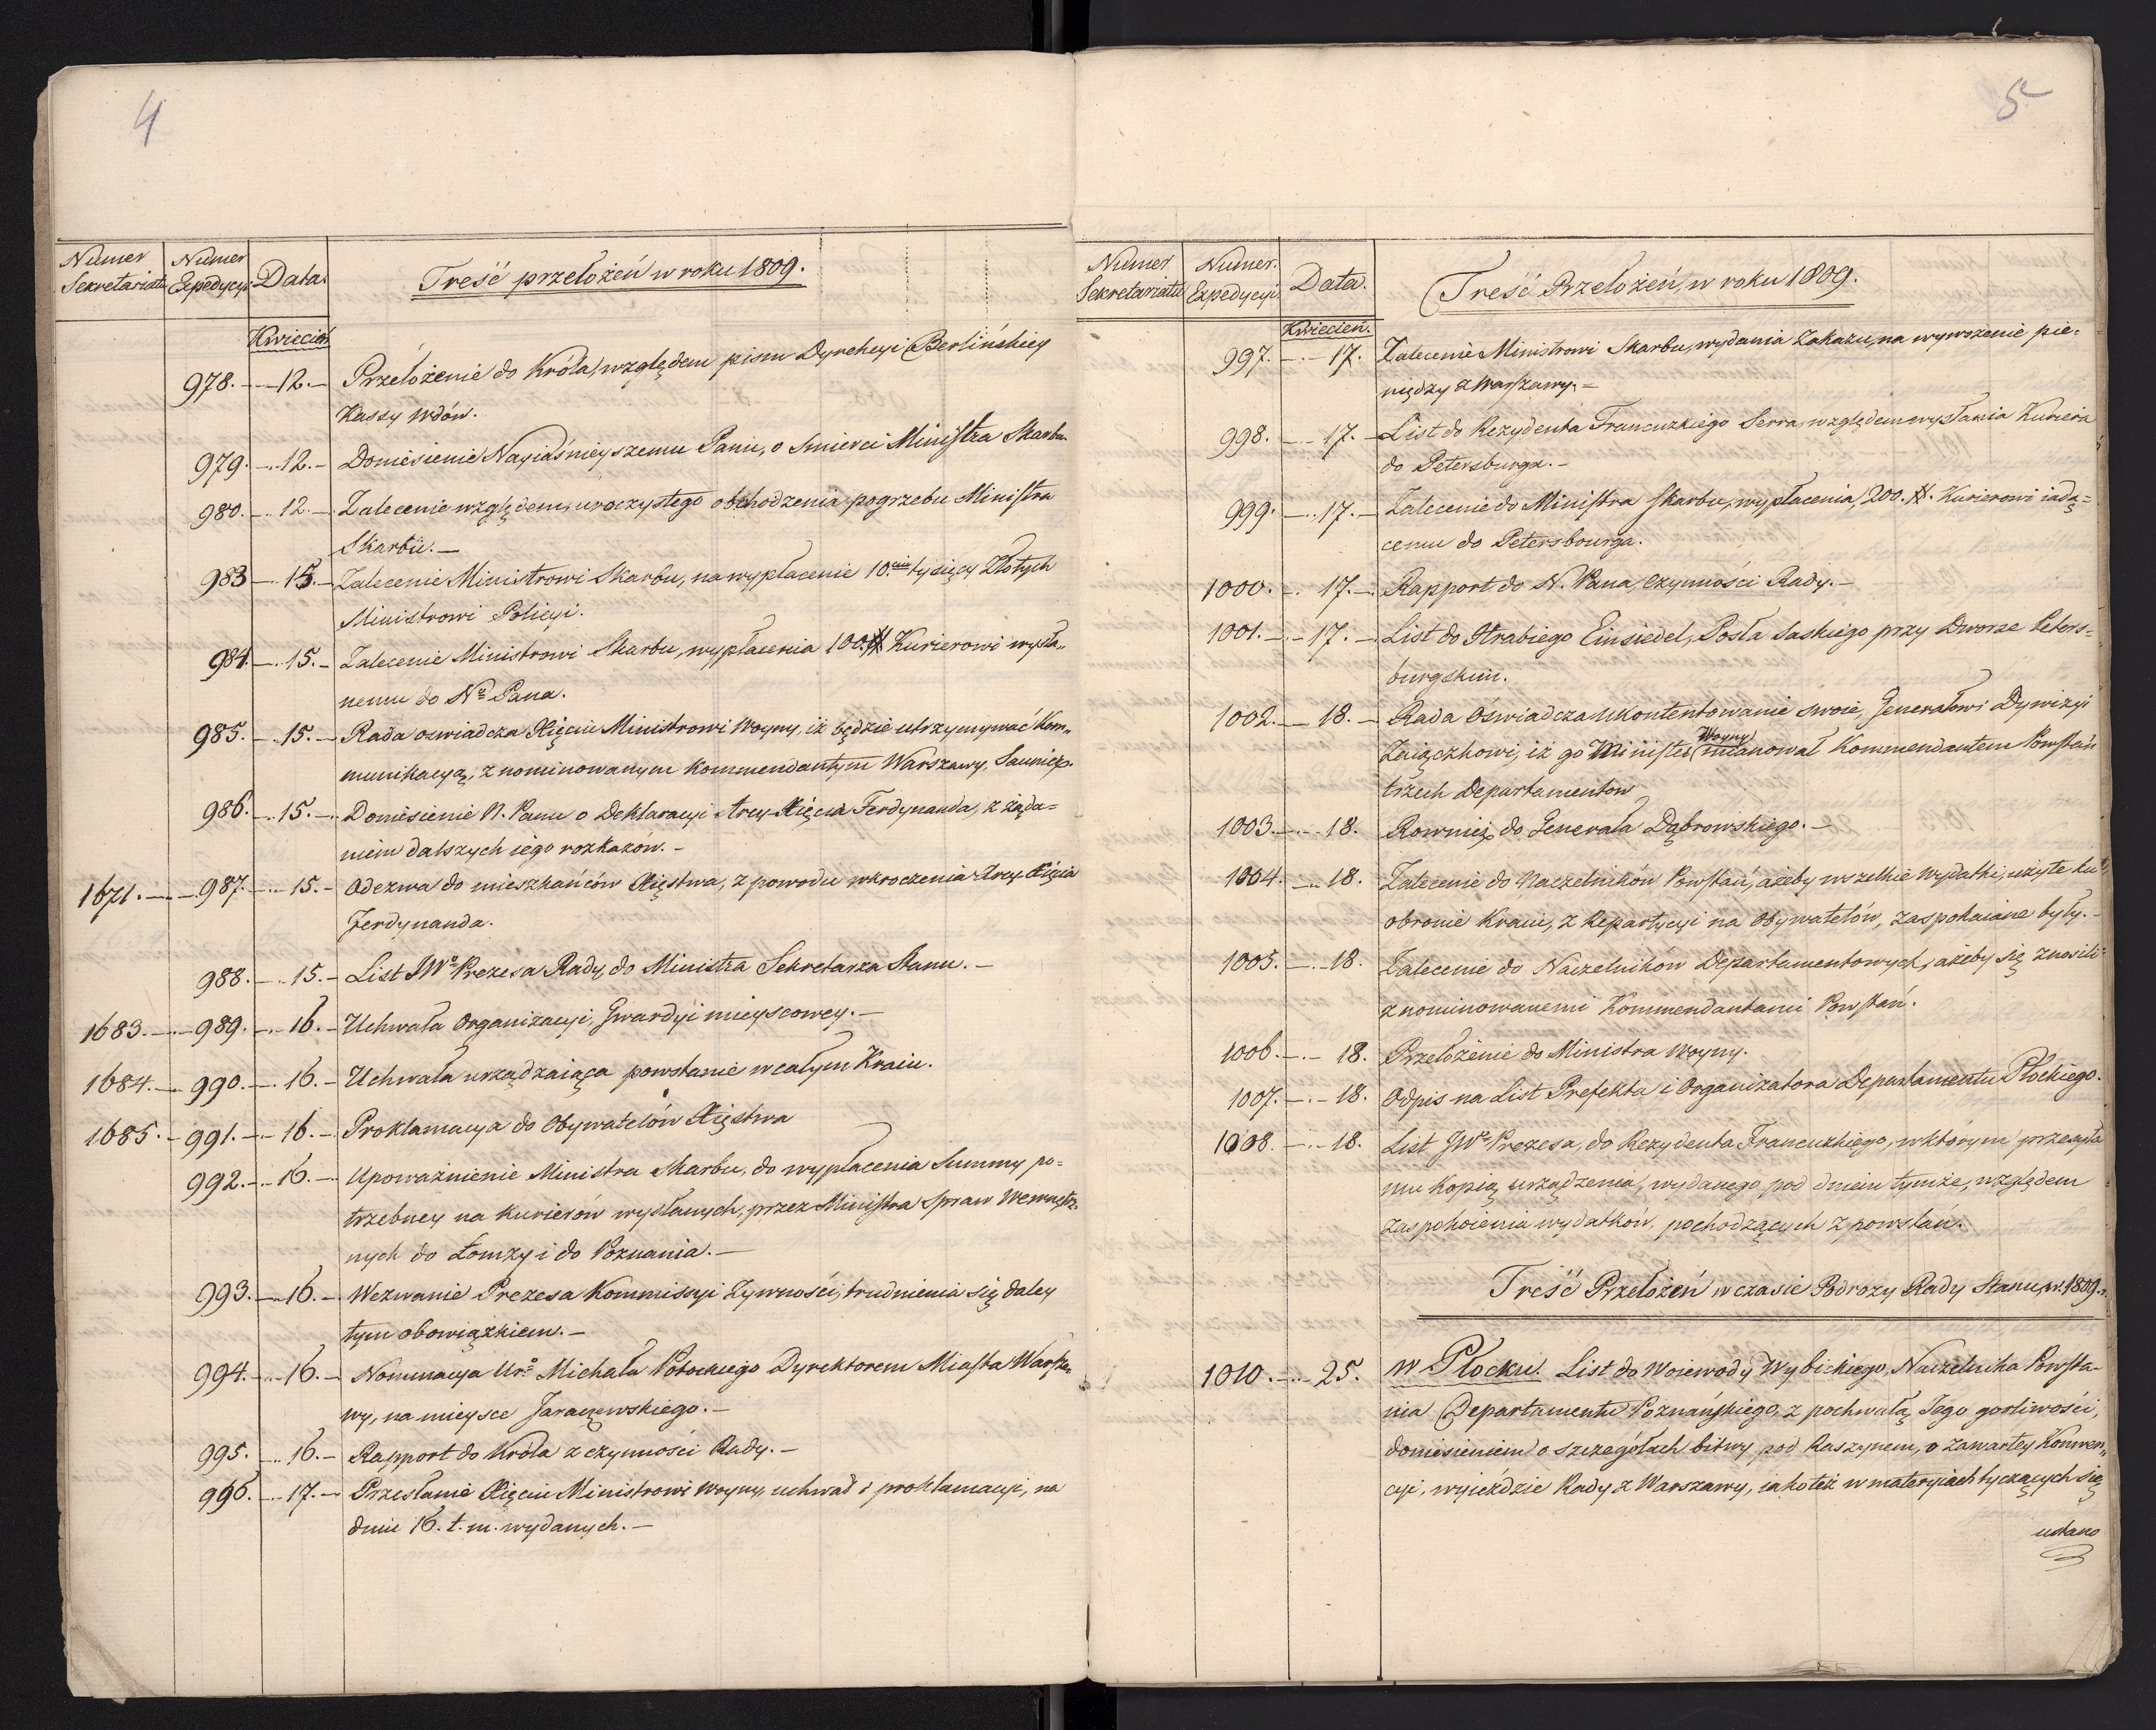 4
Numer Sekretariatu
Numer Expedycyi
Data
Treść przełożeń w roku 1809.
Kwiecień
978. 12. Przełożenie do Króla, względem pism Dyrekcyi Berlińskiey
Kassy Wdów.
979. 12. Doniesienie Nayiaśnieyszemu Panu, o Smierci Ministra Skarbu
980. 12. Zalecenie względem uroczystego obchodzenia pogrzebu Ministra
Skarbu.
983 15. Zalecenie Ministrowi Skarbu, na wypłacenie 10.ciu tysięcy Złotych
Ministrowi Policyi.
984. 15. Zalecenie Ministrowi Skarbu, wypłacenia 100. # Kurierowi wysła„
nemu do No Pana.
985. 15. Rada oswiadcza Xięciu Ministrowi Woyny, iż będzie utrzymywać kom„
munikacyą, z nominowanym Kommendantym Warszawy, Saunier.
986. 15. Doniesienie N. Panu o Deklaracyi Arcy-Xięcia Ferdynanda, z żąda=
niem dalszych iego rozkazów.
1671. 987. 15. Odezwa do mieszkańców Xięstwa, z powodu wkroczenia Arcy Xięcia
Ferdynanda.
988. 15. List JWo Prezesa Rady do Ministra Sekretarza Stanu.
1683. 989. 16. Uchwała Organizacyi, Gwardyi mieyscowey.
1684. 990. 16. Uchwała urządzaiąca powstanie w całym Kraiu.
1685. 991. 16. Proklamacya do Obywatelów Xięstwa
992. 16. Upoważnienie Ministra Skarbu, do wypłacenia Summy po=
trzebney na kurierów wysłanych, przez Ministra Spraw Wewnętrz.
nych do Łomży i do Poznania.
993. 16. Wezwanie Prezesa Kommissyi Żywności, trudnienia się daley
tym obowiązkiem.
994. 16. Nominacya Uro Michała Potockiego Dyrektorem Miasta Warsza„
wy, na mieysce Jaraczewskiego.
995. 16. Rapport do Króla z czynności Rady.
996. 17. Przesłanie Xięciu Ministrowi Woyny, uchwał i proklamacyi, na
dniu 16. t. m. wydanych.
5
Numer Sekretarzatu
Numer. Expedycyi
Data.
Treść Przełożeń, w roku 1809.
Kwiecień.
997. 17. Zalecenie Ministrowi Skarbu, wydania Zakazu, na wywożenie pie=
niędzy z Warszawy.
998. 17. List do Rezydenta Francuzkiego Serra, względem wysłania Kuriera
do Petersburga.
999. 17. Zalecenie do Ministra Skarbu, wypłacenia, 200. #. Kurierowi iadą=
cemu do Petersbourga.
1000. 17. Rapport do N. Pana, czynności Rady.
1001. 17. List do Hrabiego Einsiedel, Posła Saskiego przy Dworze Peters=
burgskim.
1002. 18. Rada Oświadcza ukontentowanie swoie, Generałowi Dywizyi
Zaiączkowi, iż go Minister Woyny mianował Kommendantem Powstań
trzech Departamentow
1003. 18. Rowniez do Generała Dąbrowskiego.
1004. 18. Zalecenie do Naczelników Powstań, ażeby wszelkie wydatki, użyte ku
obronie Kraiu, z Repartycyi na Obywatelów, zaspokaiane były.
1005. 18. Zalecenie do Naczelników Departamentowych, ażeby się znosili
z nominowanemi Kommendantami Powstań.
1006. 18. Przełożenie do Ministra Woyny.
1007. 18. Odpis na List Prefekta i Organizatora Departamentu Płockiego.
1008. 18. List JWo Prezesa, do Rezydenta Francuzkiego, w którym przesyła
mu kopią urządzenia, wydanego pod dniem tymże, względem
zaspokoienia wydatków, pochodzących z powstań.
Treść Przełożeń w czasie Podrozy Rady Stanu, w. 1809. r.
1010. 25. W Płocku. List do Woiewody Wybickiego, Naczelnika Powsta=
nia Departamentu Poznańskiego, z pochwałą Jego gorliwości,
doniesieniem o szczegółach bitwy pod Raszynem, o zawartey Konwen„
cyi, wyieździe Rady z Warszawy, iako też w materyiach tyczących się
ustano